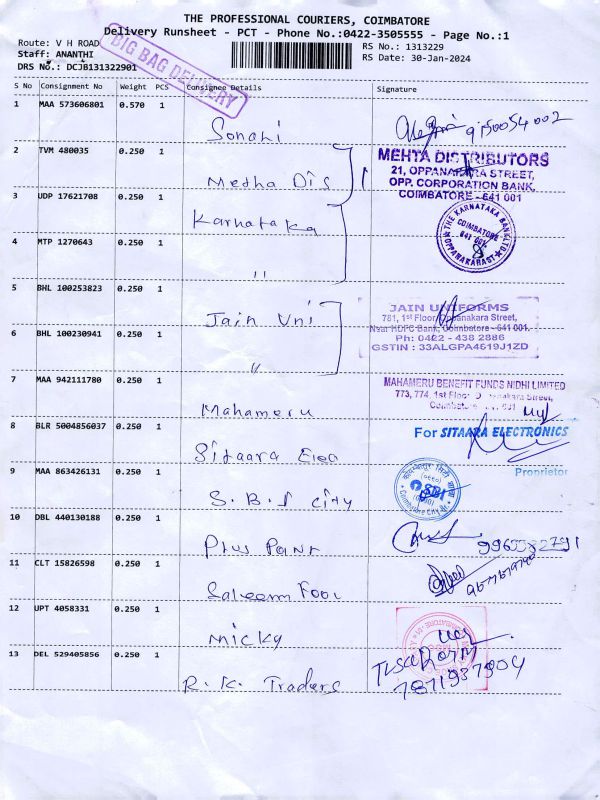 THE PROFESSIONAL COURIERS, COIMBATORE
Delivery Runsheet - PCT - Phone No.:0422-3505555 - Page No.:1
Route: V H ROAD
RS No.: 1313229
Staff: ANANTHI
RS Date: 30-Jan-2024
DRS No.: DCJB131322901
BIG BAG DELIVERY
S No Consignment No Weight PCS Consignee Details Signature
1 MAA 573606801 0.570 1
Sonahi 9150054002
2 TVM 480035 0.250 1
Metha Dis
MEHTA DISTRIBUTORS
21, OPPANAKARA STREET,
OPP. CORPORATION BANK,
COIMBATORE - 641 001
3 UDP 17621708 0.250 1
Karnataka
THE KARNATAKA BANK LTD
COIMBATORE
641 001
OPPANAKARAST
4 MTP 1270643 0.250 1
"
5 BHL 100253823 0.250 1
Jain Uni
JAIN UNIFORMS
781, 1st Floor, Oppanakara Street,
Near HDFC Bank, Coimbatore - 641 001.
Ph: 0422 - 438 2886
GSTIN : 33ALGPA4619J1ZD
6 BHL 100230941 0.250 1
"
7 MAA 942111780 0.250 1
Mahameru
MAHAMERU BENEFIT FUNDS NIDHI LIMITED
773, 774, 1st Floor
8 BLR 5004856037 0.250 1
Sitaara Elec
For SITAARA ELECTRONICS
Proprietor
9 MAA 863426131 0.250 1
S.B.I City
SBI
Coimbatore City Br.
10 DBL 440130188 0.250 1
Plus Point
11 CLT 15826598 0.250 1
Saleem Foot
12 UPT 4058331 0.250 1
Micky
13 DEL 529405856 0.250 1
R.K. Traders
7871937904